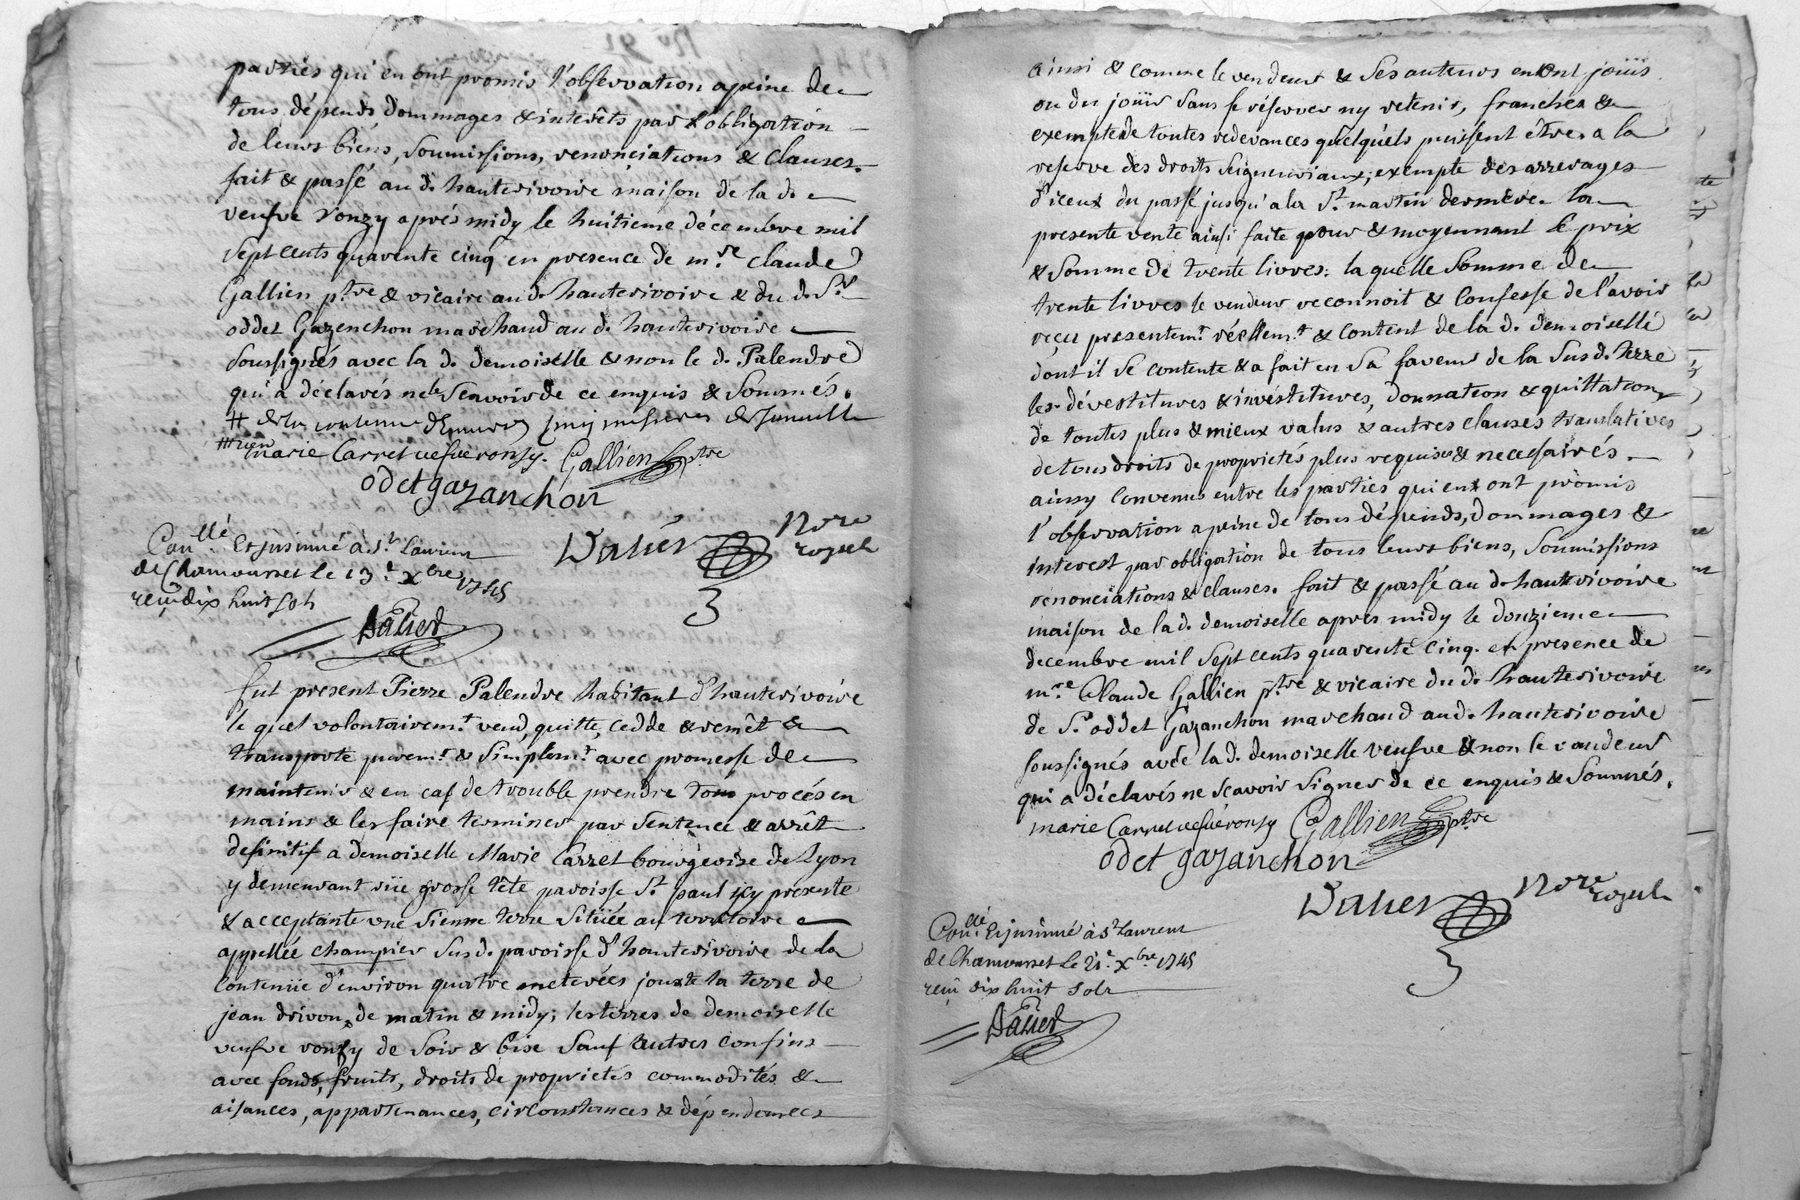 parties qui en ont promis l'observation a peine de
tous dépends dommages & intérêts par l'obligation
de leurs biens, soumissions, renonciations & clauses.
fait & passé au d. hauterivoire maison de la d.
veufve ronzy aprés midy le huitieme décembre mil
sept cents quarente cinq en presence de m.re claude
Gallien p.tre & vicaire au d. hauterivoire & du d. S.r
oddet Gazenchon marchand au d. hauterivoire
soussignés avec la d. demoiselle & non le d. Palendre
qui a déclarés ne scavoir de ce enquis & sommés.
# de la contenue d'Environ cinq mesures de semaille
marie Carret vefve ronsy. Gallien ptre
odet gazanchon
Dalier No.re royal
Con.llé Et jnsinué à S.t Laurent
de Chamousset le 13.e Xbre 1745
reçu dix huit sols
Dalier
fut present Pierre Palendre habitant d'hauterivoire
le quel volontairem.t vend, quitte, cedde & remêt &
transporte purem.t & simplem.t avec promesse de
maintenir & en cas de trouble prendre tous procés en
mains & les faire terminer par sentence & arrêt
definitif a demoiselle Marie Carret bourgeoise de Lyon
y demeurant rüe grosse tête paroisse S.t paul icy presente
& acceptante une sienne terre sitüée au territoire
appellée champier sus d. paroisse d'hauterivoire de la
contenüe d'environ quatre meterées jouxte la terre de
jean drivon, de matin & midy; les terres de demoiselle
veufve ronzy de soir & bise sauf autres confins
avec fonds, fruits, droits de proprietés commodités &
aisances, appartenances, circonstances & dépendences
ainsi & comme le vendeur & ses auteurs en ont joüis
ou du joüir sans se réserver ny retenir, franches &
exempte de toutes redevances quelqu'els puissent être a la
reserve des droits seigneuriaux; exempte des arrerages
d'iceux du passé jusqu'a la S.t martin derniere. la
presente vente ainsi faite pour & moyennant le prix
& somme de trente livres: laquelle somme de
trente livres le vendeur reconnoit & confesse de l'avoir
reçu presentem.t réellem.t & content de la d. demoiselle
dont il se contente & a fait en sa faveur de la sus d. terre
les dévestitures & investitures, donnation & quittation
de toutes plus & mieux values & autres clauses translatives
de tous droits de proprietés plus requises & necessairés.
ainsy convenu entre les parties qui en ont promis
l'observation a peine de tous dépends, dommages &
interest par obligation de tous leurs biens, soumissions
renonciations & clauses. fait & passé au d. hauterivoire
maison de la d. demoiselle aprés midy le douzieme
decembre mil sept cents quarente cinq. en presence de
m.re Claude Gallien p.tre & vicaire du d. hauterivoire
de S.r oddet Gazanchon marchand au d. hauterivoire
soussignés avec la d. demoiselle veufve & non le vendeur
qui a déclarés ne scavoir signer de ce enquis & sommés.
marie Carret vefve ronsy Gallien ptre
odet gazanchon
Dalier No.re royal
Con.llé Et jnsinué à S.t Laurent
de Chamousset le 21.e Xbre 1745
reçu dix huit sols
Dalier